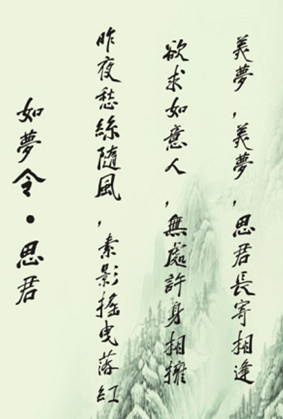 美夢,美夢,思君長寄相逢
欲求如意人,無處許身相擁
昨夜愁絲隨風,素影搖曳落紅
如夢令·思君